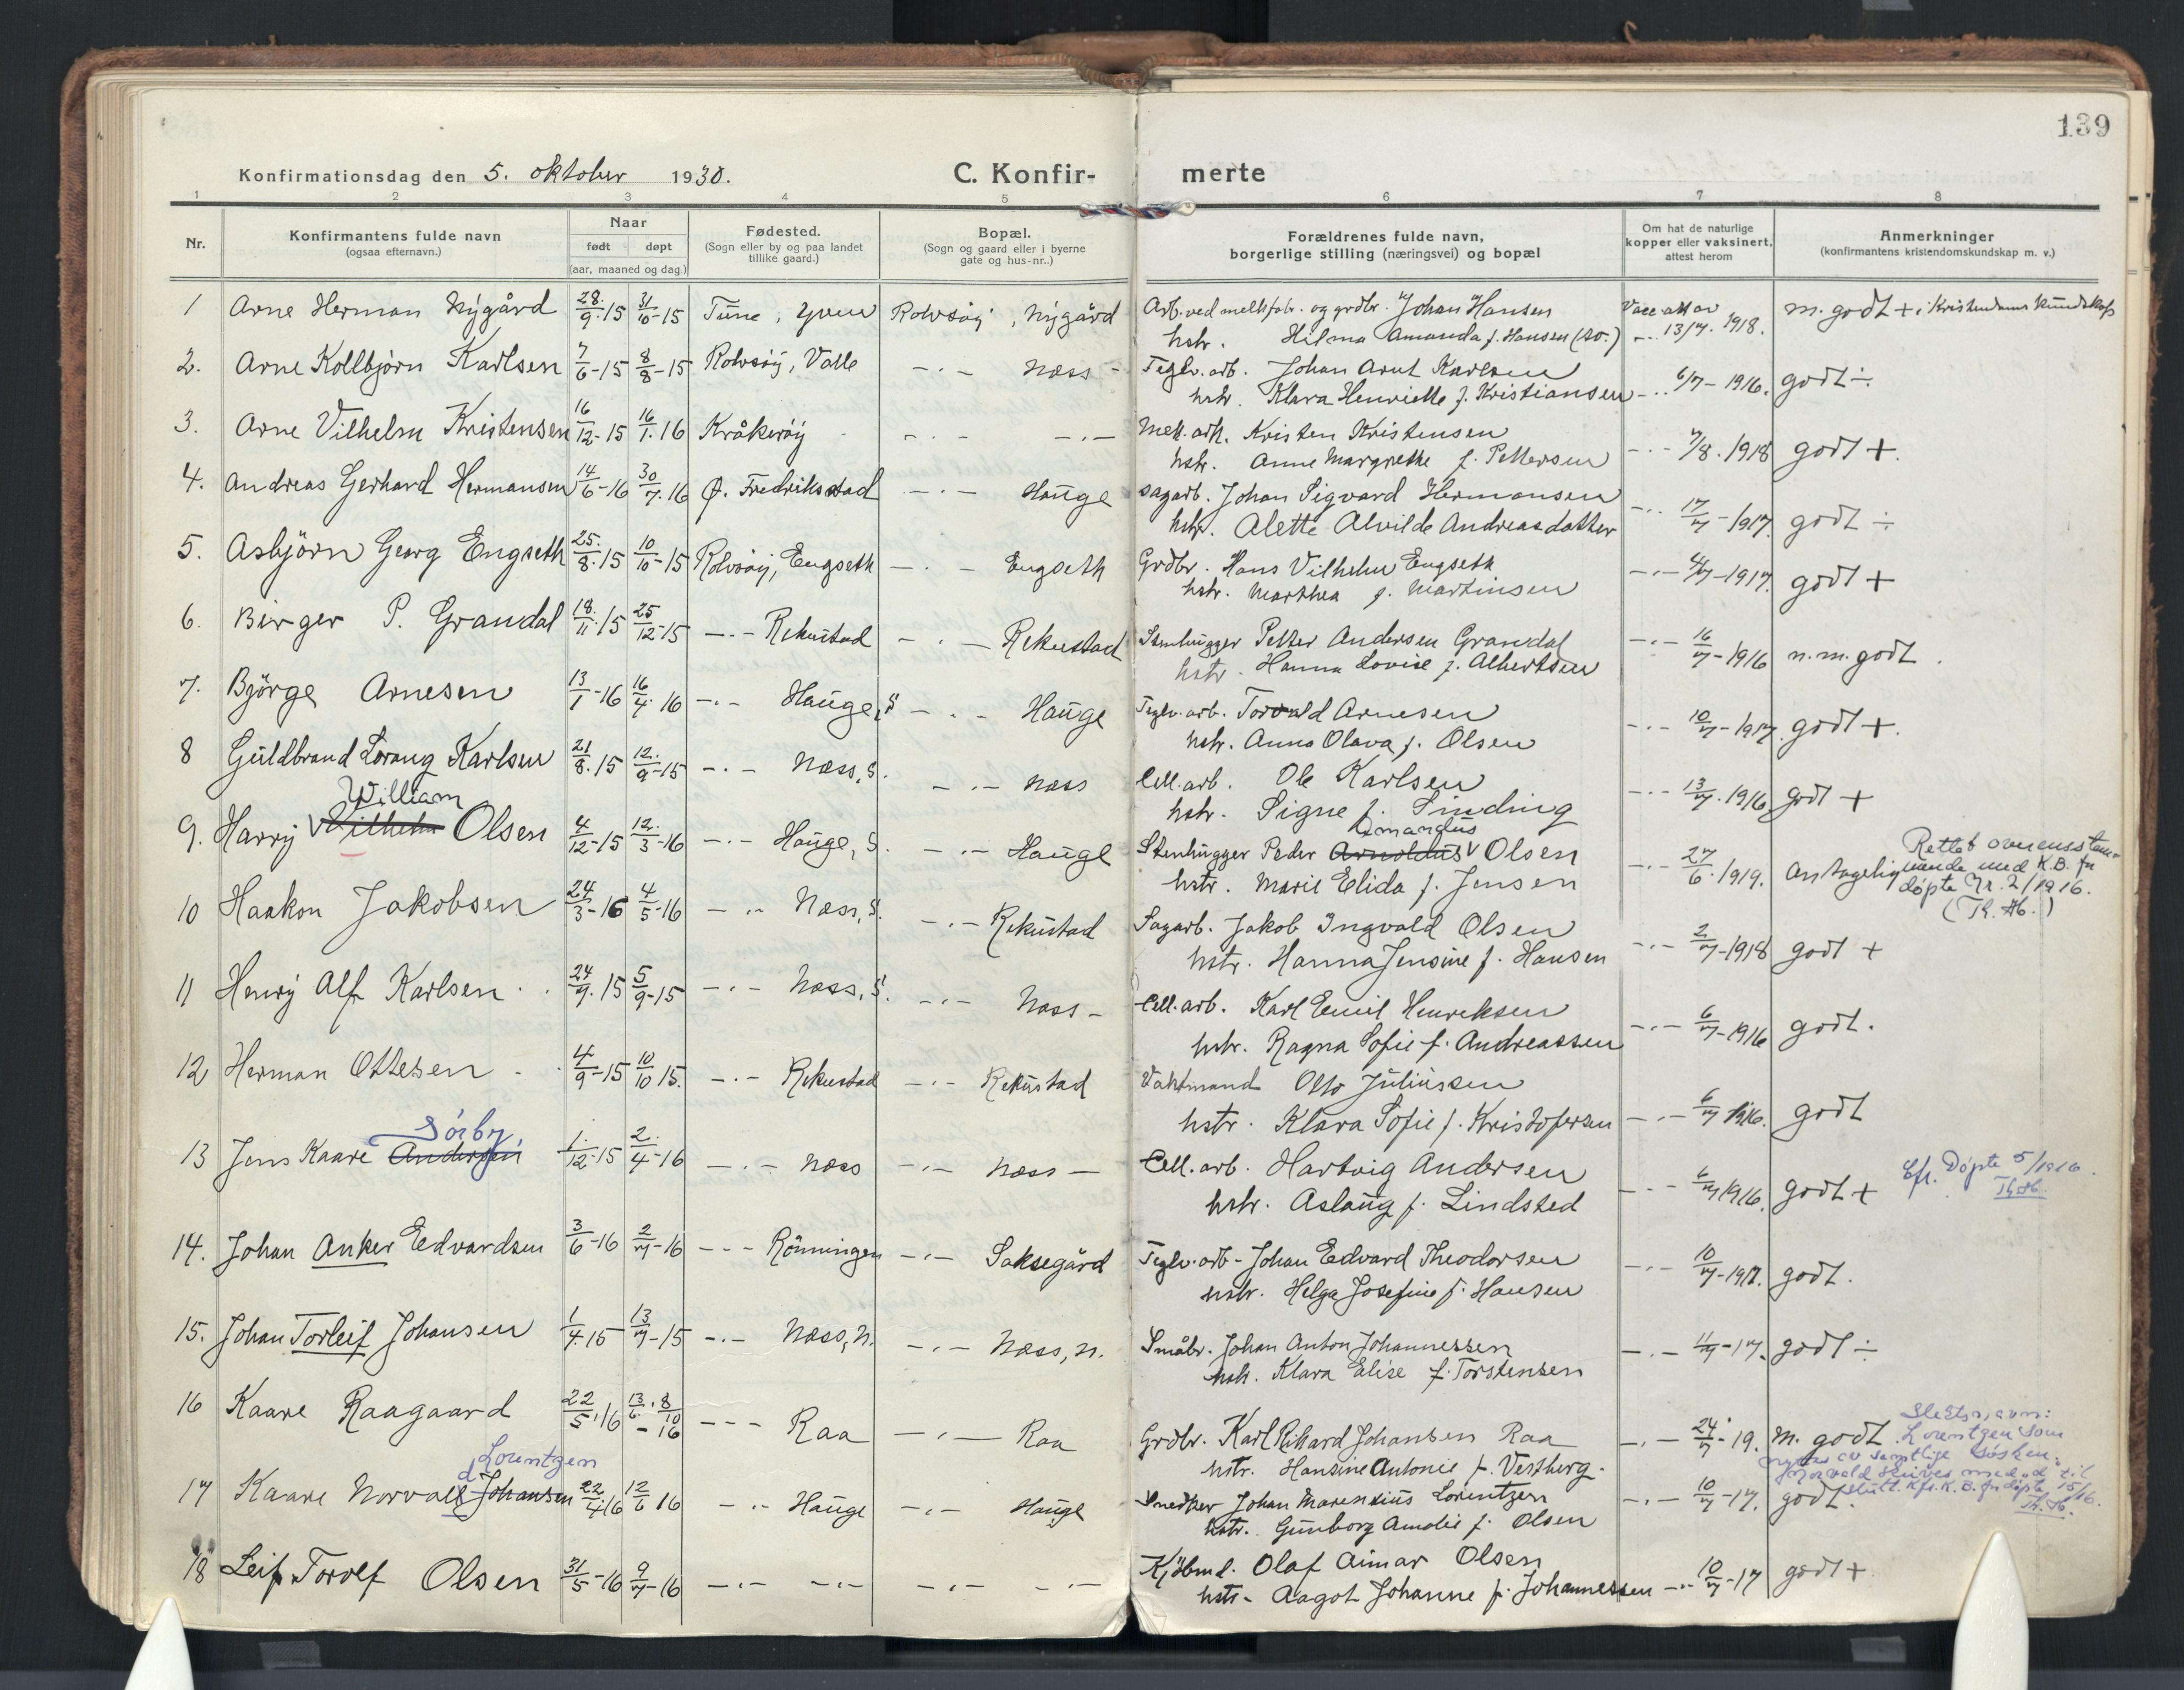 139
Konfirmationsdag den 5. oktober 1930. C. Konfir- merte
1 2 3 4 5 6 7 8
Nr. Konfirmantens fulde navn (ogsaa efternavn.) Naar født døpt (aar, maaned og dag.) Fødested. (Sogn eller by og paa landet tillike gaard.) Bopæl. (Sogn og gaard eller i byerne gate og hus-nr..) Forældrenes fulde navn, borgerlige stilling (næringsvei) og bopæl Om hat de naturlige kopper eller vaksinert, attest herom Anmerkninger (konfirmantens kristendomskundskap m. v.)
1 Arne Herman Nygård 28/9.15 31/10-15 Tune, Yven Rolvsøy, Nygård Arb. ved mellfabr. og grdbr. Johan Hansen Vacc. att av m. godt + i Kristendoms kundskap
hstr. Hilma Amanda f. Hansen -.- 13/7. 1918.
2. Arne Kollbjørn Karlsen 7/6-15 8/8-15 Rolvsøy, Valle -.- Næss - Teglv. arb. Johan Arnt Karlsen
hstr. Klara Henriette f. Kristiansen -.- 6/7-1916. godt ÷
3. Arne Vilhelm Kristensen 16/12-15 16/1.16 Kråkerøy -.- -.- Mek. arb. Kristen Kristensen
hstr. Anne Margrethe f. Pettersen -.- 7/8.1918 godt +.
4. Andreas Gerhard Hermansen 14/6-16 30/7.16 Ø. Fredrikstad -.- Hauge Sagarb. Johan Sigvard Hermansen
hstr. Alette Alvilde Andreasdatter -.- 17/7-1917. godt ÷
5. Asbjørn Georg Engseth 25./8.15 10/10-15 Rolvsøy, Engseth -.- Engseth Grdbr. Hans Vilhelm Engseth
hstr. Marthea f. Martinsen -.- -1917. godt +
6. Birger P. Grandal 18./11.15 25/12-15 -.- Rekustad -.- Rekustad Stenhugger Petter Andersen Grandal
hstr. Hanna Lovise f. Albertsen -.- 16/7-1916 n.m. godt.
7. Bjørge Arnesen 13/1-16 16/4.16 -.- Hauge, S. -.- Hauge Teglv. arb. Torvald Arnesen
hstr. Anna Olava f. Olsen -.- 10/7-1917. godt +.
8 Guldbrand Lorang Karlsen 21/8.15 12./9-15 -.- Næss, S. -.- Næss Cell. arb. Ole Karlsen
hstr. Signe f. Sinding -.- 13/7.1916 godt +
William
Amandus
9. Harry Vilhelm Olsen 4/12-15 12./3-16 -.- Hauge, S. -.- Hauge Stenhugger Peder Arnoldus Olsen
hstr. Marie Elida f. Jensen -.- 27/6.1919. Antagelig Rettet overensstem-
mende med K.B. for
døpte Nr. 2/1916.
(Th. Ab.)
10 Haakon Jakobsen 24/3-16 4/5-16 -.- Næss, S. -.- Rekustad Sagarb. Jakob Ingvald Olsen
hstr. Hanna Jensine f. Hansen -.- 2/7-1918 godt +
11 Henry Alf Karlsen 24/9.15 5/9-15 -.- Næss, S. -.- Næss - Cell. arb. Karl Emil Henriksen
hstr. Ragna Sofie f. Andreassen -.- 6/7-1916 godt.
12 Herman Ottesen 4/9-15 10/10 15. -.- Rekustad -.- Rekustad Vaktmand Otto Juliussen
hstr. Klara Sofie f. Kristofersen -.- 6/7 1916. godt
Sørby
13 Jens Kaare Andersen 1./12-15 2./4-16 -.- Næss -.- Næss - Cell. arb. Hartvig Andersen
hstr. Aslaug f. Lindsted -.- 6/7 1916. godt + Cfr. Døpte 5/1916.
Th. Ab.
14. Johan Anker Edvardsen 3/6-16 2/7-16 -.- Rønningen -.- Saksegård Teglv. arb - Johan Edvard Theodorsen
hstr. Helga Josefine f. Hansen -.- 10/7-1917. godt.
15. Johan Torleif Johansen 1/4.15 13/7-15 -.- Næss, N. -.- Næss, N. Småbr. Johan Anton Johannessen
hstr. Klara Elise f. Torstensen -.- 11/7-17. godt ÷
16 Kaare Raagaard 22/5.16 13/6. 8/10 - 16 -.- Raa -.- Raa Grdbr. Karl Rikard Johansen Raa
hstr. Hansine Antonie f. Vestberg. -.- 24/7-19. m. godt.
Slektsnavn:
Lorentzen som
nyttes av samtlige søsken.
Norvald skrives med d til
slutt. Kfr. K.B. for døpte 15/16.
Th. Ab.
d Lorentzen
17 Kaare Norvall Johansen 22/4.16 12/6 16 -.- Hauge -.- Hauge Snedker Johan Marensius Lorentzen
hstr. Gunborg Amalie f. Olsen -.- 10/7-17. godt.
18 Leif Torolf Olsen 31/5-16 9/7-16 -.- -.- -.- -.- Kjøbmd. Olaf Aimar Olsen
hstr. Aagot Johanne f. Johannessen -.- 10/7-17 godt +